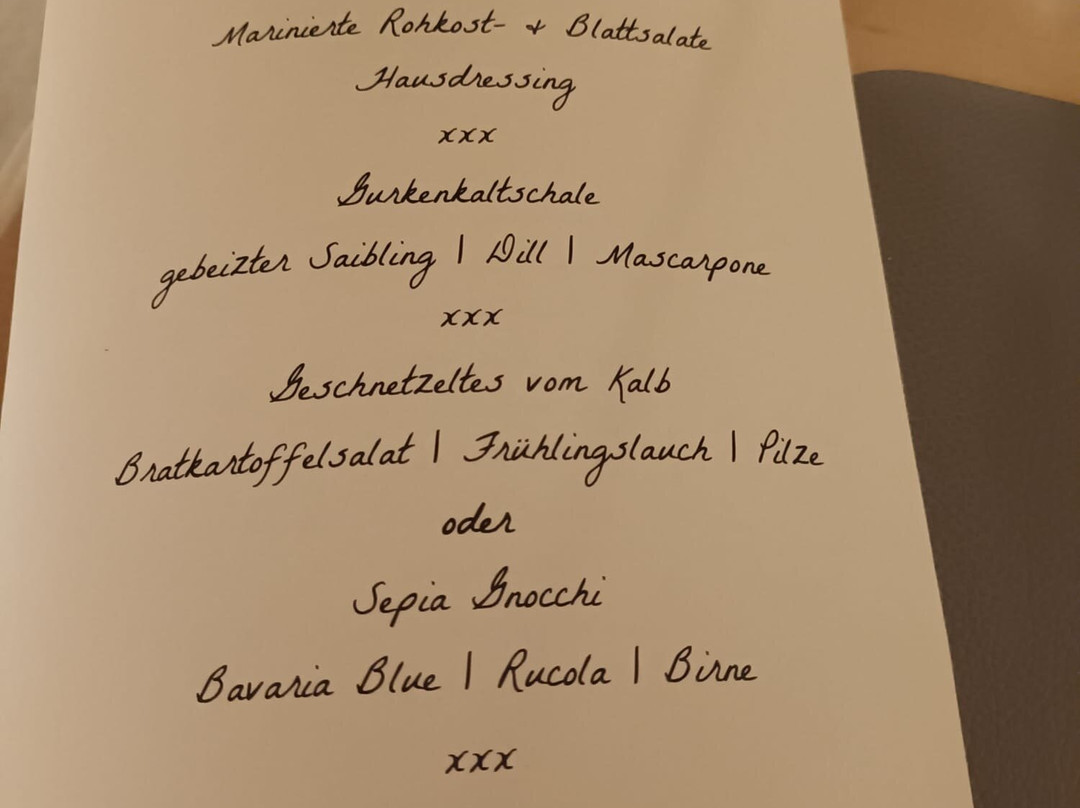 Marinierte Rohkost- & Blattsalate
Hausdressing
xxx
Gurkenkaltschale
gebeizter Saibling | Dill | Mascarpone
xxx
Geschnetzeltes vom Kalb
Bratkartoffelsalat | Frühlingslauch | Pilze
oder
Sepia Gnocchi
Bavaria Blue | Rucola | Birne
xxx